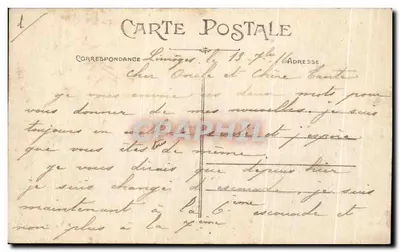 1
CARTE POSTALE
CORRESPONDANCE
ADRESSE
Limoges, le 13 7bre 16
Cher Oncle et Chère Tante
je vous envoie ces deux mots pour
vous donner de mes nouvelles. je suis
toujours en santé et j'espère
que vous êtes de même.
je vous dirais que depuis hier
je suis changé d'escouade. je suis
maintenant à la 6ème escouade et
non plus à la 7ème